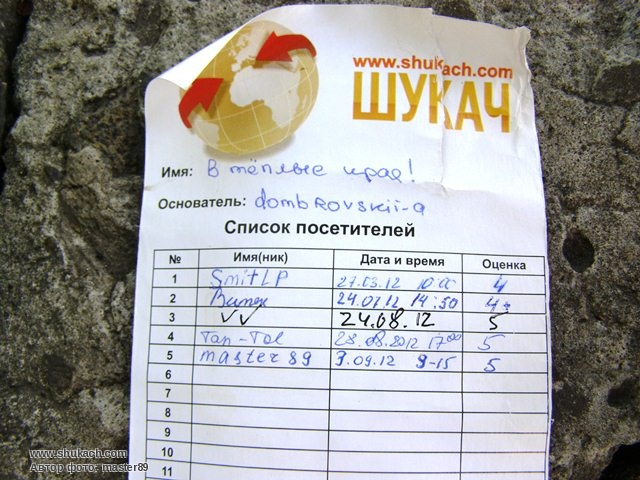 www.shukach.com
ШУКАЧ
Имя: В тёплые края!
Основатель: dombrovskii-a
Список посетителей
№ Имя(ник) Дата и время Оценка
1 SmitLP 27.03.12 10:00 4
2 24.07.12 14:50 4
3 VV 24.08.12 5
4 Tan-Tol 28.08.2012 17:00 5
5 master89 9.09.12 9-15 5
6
7
8
9
10
11
www.shukach.com
Автор фото: master89